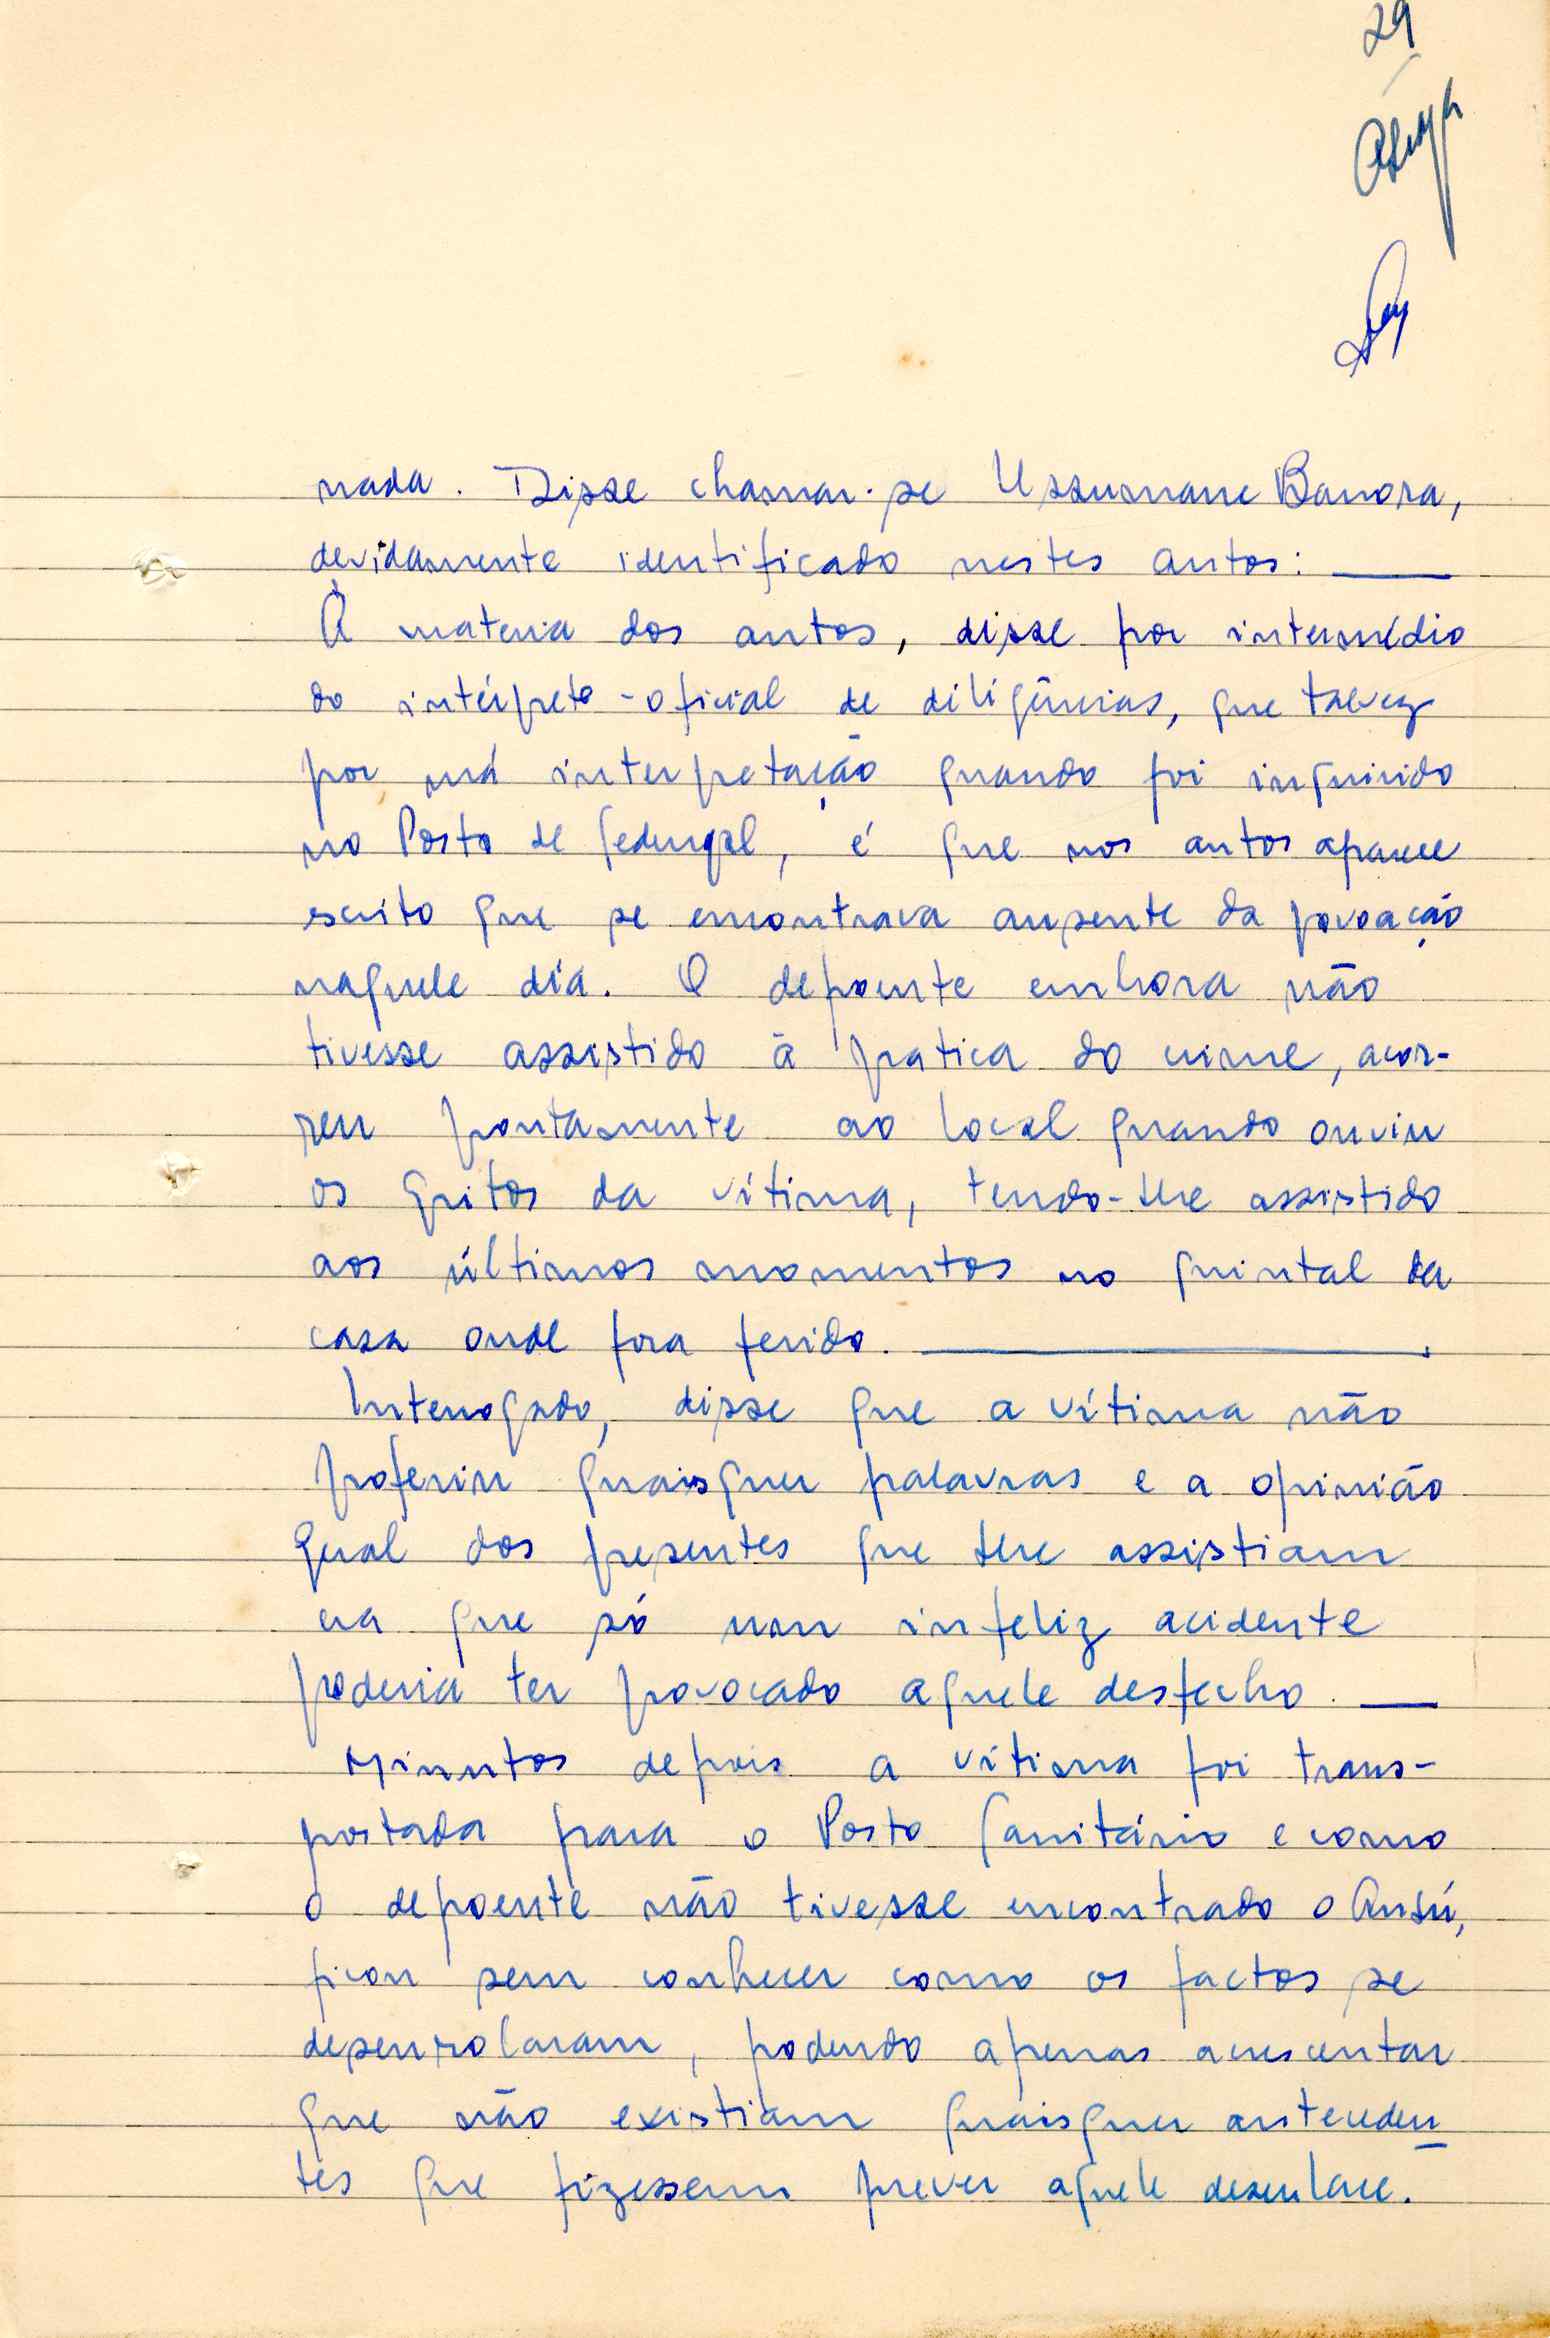 29
nada. Disse chamar-se Ussumane Banora,
devidamente identificado nestes autos: ——
À materia dos autos, disse por intermédio
do intérprete-oficial de diligências, que talvez
por má interpretação quando foi inquirido
no Posto de, é que nos autos aparece
escrito que se encontrava ausente da povoação
naquele dia. O depoente embora não
tivesse assistido à pratica do crime, acor-
reu prontamente ao local quando ouviu
os gritos da vítima, tendo-lhe assistido
aos últimos momentos no quintal da
casa onde fora ferido. ————
Interrogado, disse que a vítima não
proferiu quaisquer palavras e a opinião
geral dos presentes que lhe assistiam
era que só um infeliz acidente
poderia ter provocado aquele desfecho. ——
Minutos depois a vítima foi trans-
portada para o Posto Sanitário e como
o depoente não tivesse encontrado o Ansú,
ficou sem conhecer como os factos se
desenrolaram, podendo apenas acrescentar
que não existiam quaisquer anteceden
tes que fizessem prever aquele desenlace.